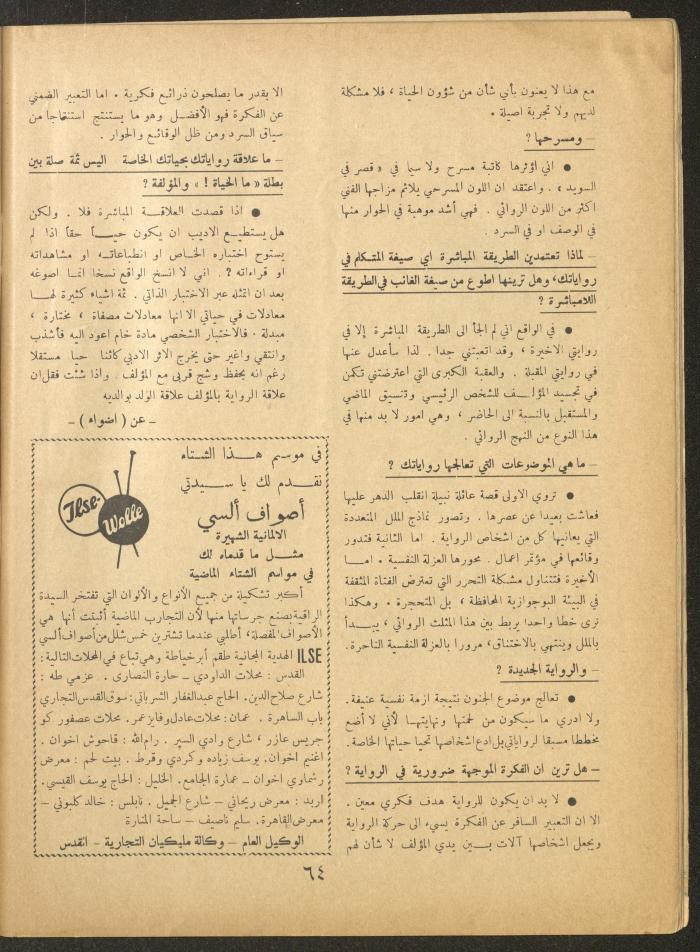 مع هذا لا يعنون بأي شأن من شؤون الحياة ، فلا مشكلة
لديهم ولا تجربة اصيلة .
— ومسرحها ؟
● اني اؤثرها كاتبة مسرح ولا سيما في « قصر في
السويد » . واعتقد ان اللون المسرحي يلائم مزاجها الفني
اكثر من اللون الروائي . فهي أشد موهبة في الحوار منها
في الوصف او في السرد .
— لماذا تعتمدين الطريقة المباشرة اي صيغة المتكلم في
رواياتك، وهل ترينها اطوع من صيغة الغائب في الطريقة
اللامباشرة ؟
● في الواقع اني لم الجأ الى الطريقة المباشرة إلا في
روايتي الاخيرة ، وقد اتعبتني جدا . لذا سأعدل عنها
في روايتي المقبلة . والعقبة الكبرى التي اعترضتني تكمن
في تجسيد المؤلف للشخص الرئيسي وتنسيق الماضي
والمستقبل بالنسبة الى الحاضر ، وهي امور لا بد منها في
هذا النوع من النهج الروائي .
— ما هي الموضوعات التي تعالجها رواياتك ؟
● تروي الاولى قصة عائلة نبيلة انقلب الدهر عليها
فعاشت بعيدا عن عصرها . وتصور نماذج الملل المتعددة
التي يعانيها كل من اشخاص الرواية . اما الثانية فتدور
وقائعها في مؤتمر اعمال . محورها العزلة النفسية . اما
الأخيرة فتتناول مشكلة التحرر التي تعترض الفتاة المثقفة
في البيئة البوجوازية المحافظة ، بل المتحجرة . وهكذا
نرى خطا واحدا يربط بين هذا المثلث الروائي ، يبدأ
بالملل وينتهي بالاختناق، مرورا بالعزلة النفسية الناحرة.
— والرواية الجديدة ؟
● تعالج موضوع الجنون نتيجة ازمة نفسية عنيفة.
ولا ادري ما سيكون من لحمتها ونهايتها لأني لا أضع
مخططا مسبقا لرواياتي بل ادع اشخاصها تحيا حياتها الخاصة.
— هل ترين ان الفكرة الموجهة ضرورية في الرواية ؟
● لا بد ان يكون للرواية هدف فكري معين .
الا ان التعبير السافر عن الفكرة يسيء الى حركة الرواية
ويجعل اشخاصها آلات بين يدي المؤلف لا شأن لهم
الا بقدر ما يصلحون ذرائع فكرية . اما التعبير الضمني
عن الفكرة فهو الأفضل وهو ما يستنتج استنتاجا من
سياق السرد ومن ظل الوقائع والحوار .
— ما علاقة رواياتك بحياتك الخاصة اليس ثمة صلة بين
بطلة « ما الحياة ! » والمؤلفة ؟
● اذا قصدت العلاقة المباشرة فلا . ولكن
هل يستطيع الاديب ان يكون حياً حقاً اذا لم
يستوح اختباره الخاص او انطباعاته او مشاهداته
او قراءاته ؟ . اني لا انسخ الواقع نسخا انما اصوغه
بعد ان اتمثله عبر الاختبار الذاتي . ثمة اشياء كثيرة لها
معادلات في حياتي الا انها معادلات مصفاة ، مختارة ،
مبدلة . فالاختبار الشخصي مادة خام اعود اليه فأشذب
وانتقي واغير حتى يخرج الاثر الادبي كائنا حيا مستقلا
رغم انه يحفظ وشج قربى مع المؤلف . واذا شئت فقل ان
علاقة الرواية بالمؤلف علاقة الولد بوالديه
— عن ( اضواء ) —
في موسم هذا الشتاء
نقدم لك يا سيدتي
أصواف ألسي
الالمانية الشهيرة
مثل ما قدماه لك
في مواسم الشتاء الماضية
Ilse-
Wolle
أكبر تشكيلة من جميع الأنواع والألوان التي تفتخر السيدة
الراقية بصنع جرساتها منها لأن التجارب الماضية أثبتت أنها هي
الأصواف المفضلة، أطلبي عندما تشترين خمس شلل من أصواف ألسي
ILSE الهدية المجانية طقم أبر خياطة وهي تباع في المحلات التالية :
القدس : محلات الداودي — حارة النصارى . عزمي طه :
شارع صلاح الدين. الحاج عبد الغفار الشرباتي: سوق القدس التجاري
باب الساهرة . عمان : محلات عادل وفايز عمر . محلات عصفور كو
جريس عازر ، شارع وادي السير . رام الله : قاحوش اخوان .
اغنيم اخوان. يوسف زياده وكردي وقرط . بيت لحم : معرض
رشماوي اخوان — عمارة الجامع. الخليل : الحاج يوسف القيسي.
اربد : معرض ريحاني — شارع الجميل . نابلس : خالد كلبوني —
معرض القاهرة . سليم ناصيف — ساحة المنارة
الوكيل العام — وكالة مليكيان التجارية — القدس
٦٤